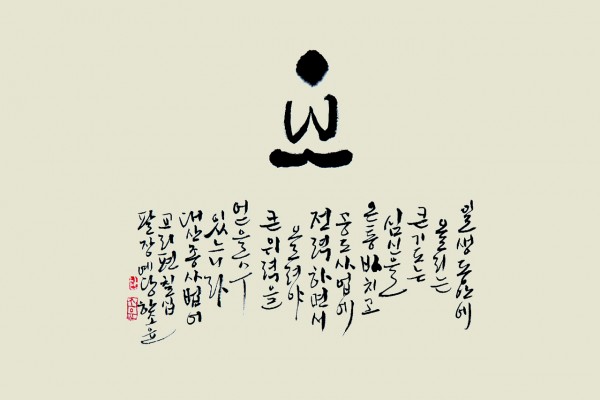 일생동안에
올리는
큰기도는
심신을
온통 바치고
공도사업에
전력하면서
올려야
큰 위력을
얻을 수
있느니라
대산종사법어
교리편칠십
팔장